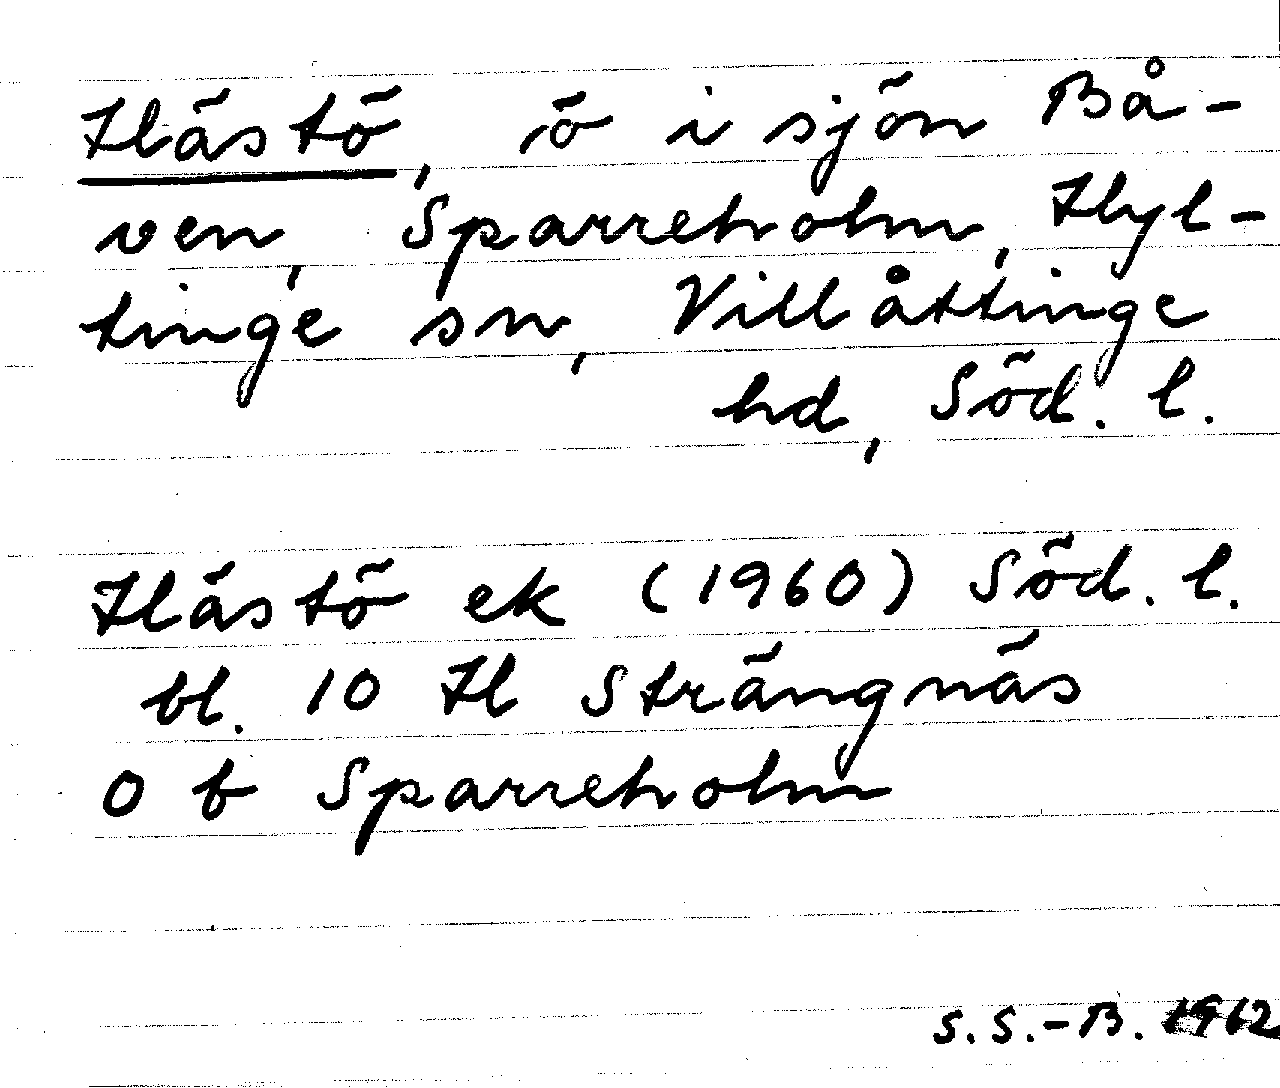 Hästö, ö i sjön Bå-
ven, Sparreholm, Hyl-
tinge sn, Villåttinge
hd, Söd. l.
Hästö ek (1960) Söd. l.
bl. 10 H Strängnäs
O b Sparreholm
S.S.-B. 1962